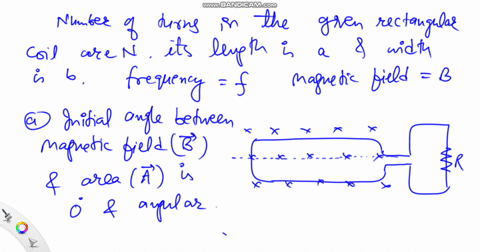 WWW.BANDICAM.COM
Number of turns in the given rectangular
coil are N. its length is a & width
is b. frequency = f magnetic field = B
(a) Initial angle between
magnetic field (B⃗)
& area (A⃗) is
0° & angular
R